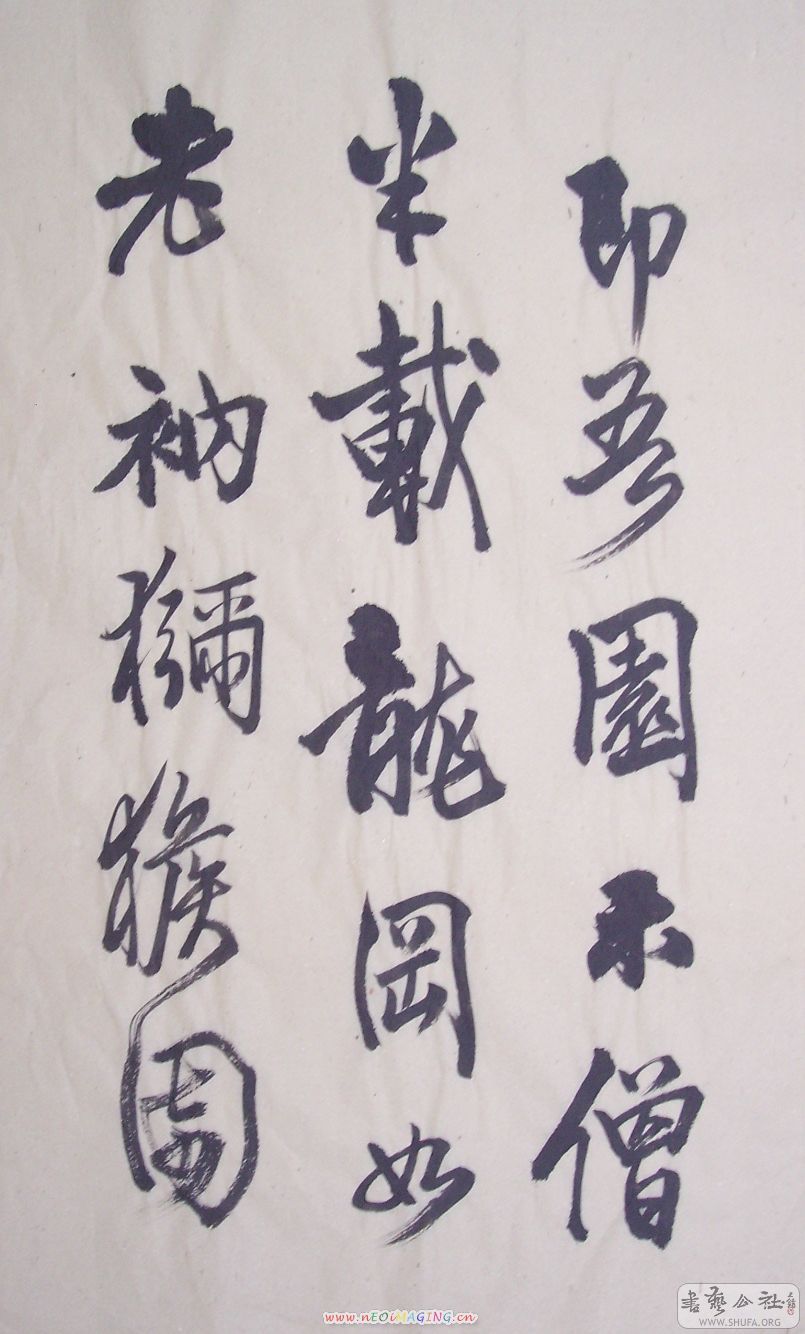 即吾園示僧
半載龍岡如
老衲獼猴
書藝公社
WWW.SHUFA.ORG
www.nEOiMAGING.cn